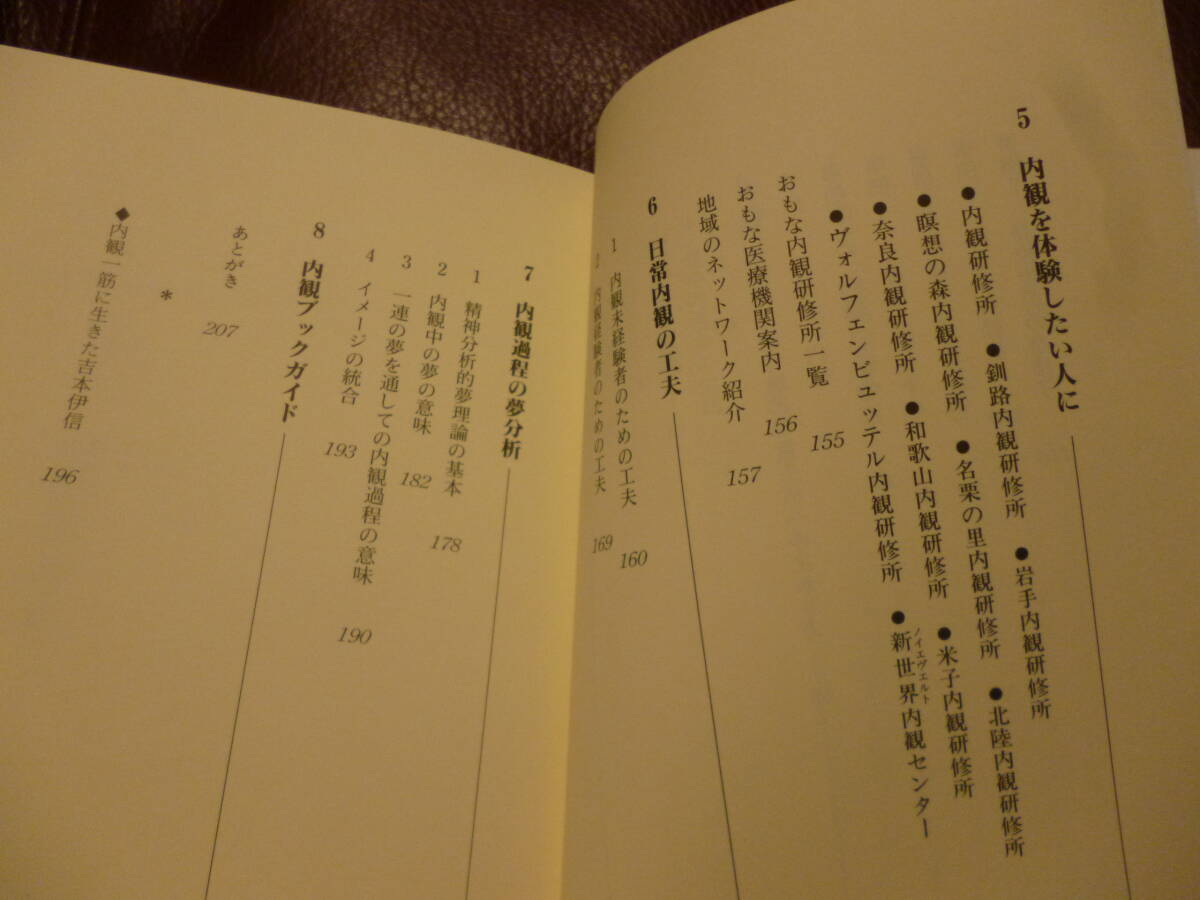 5 内観を体験したい人に
●内観研修所 ●釧路内観研修所 ●岩手内観研修所
●瞑想の森内観研修所 ●名栗の里内観研修所 ●北陸内観研修所
●奈良内観研修所 ●和歌山内観研修所 ●米子内観研修所
●ヴォルフェンビュッテル内観研修所 ●新世界内観センター
ノイエヴェルト
おもな内観研修所一覧 155
おもな医療機関案内 156
地域のネットワーク紹介 157
6 日常内観の工夫
1 内観未経験者のための工夫 160
2 内観経験者のための工夫 169
7 内観過程の夢分析
1 精神分析的夢理論の基本 178
2 内観中の夢の意味 182
3 一連の夢を通しての内観過程の意味 190
4 イメージの統合 193
8 内観ブックガイド
あとがき 207
*
◆内観一筋に生きた吉本伊信 196